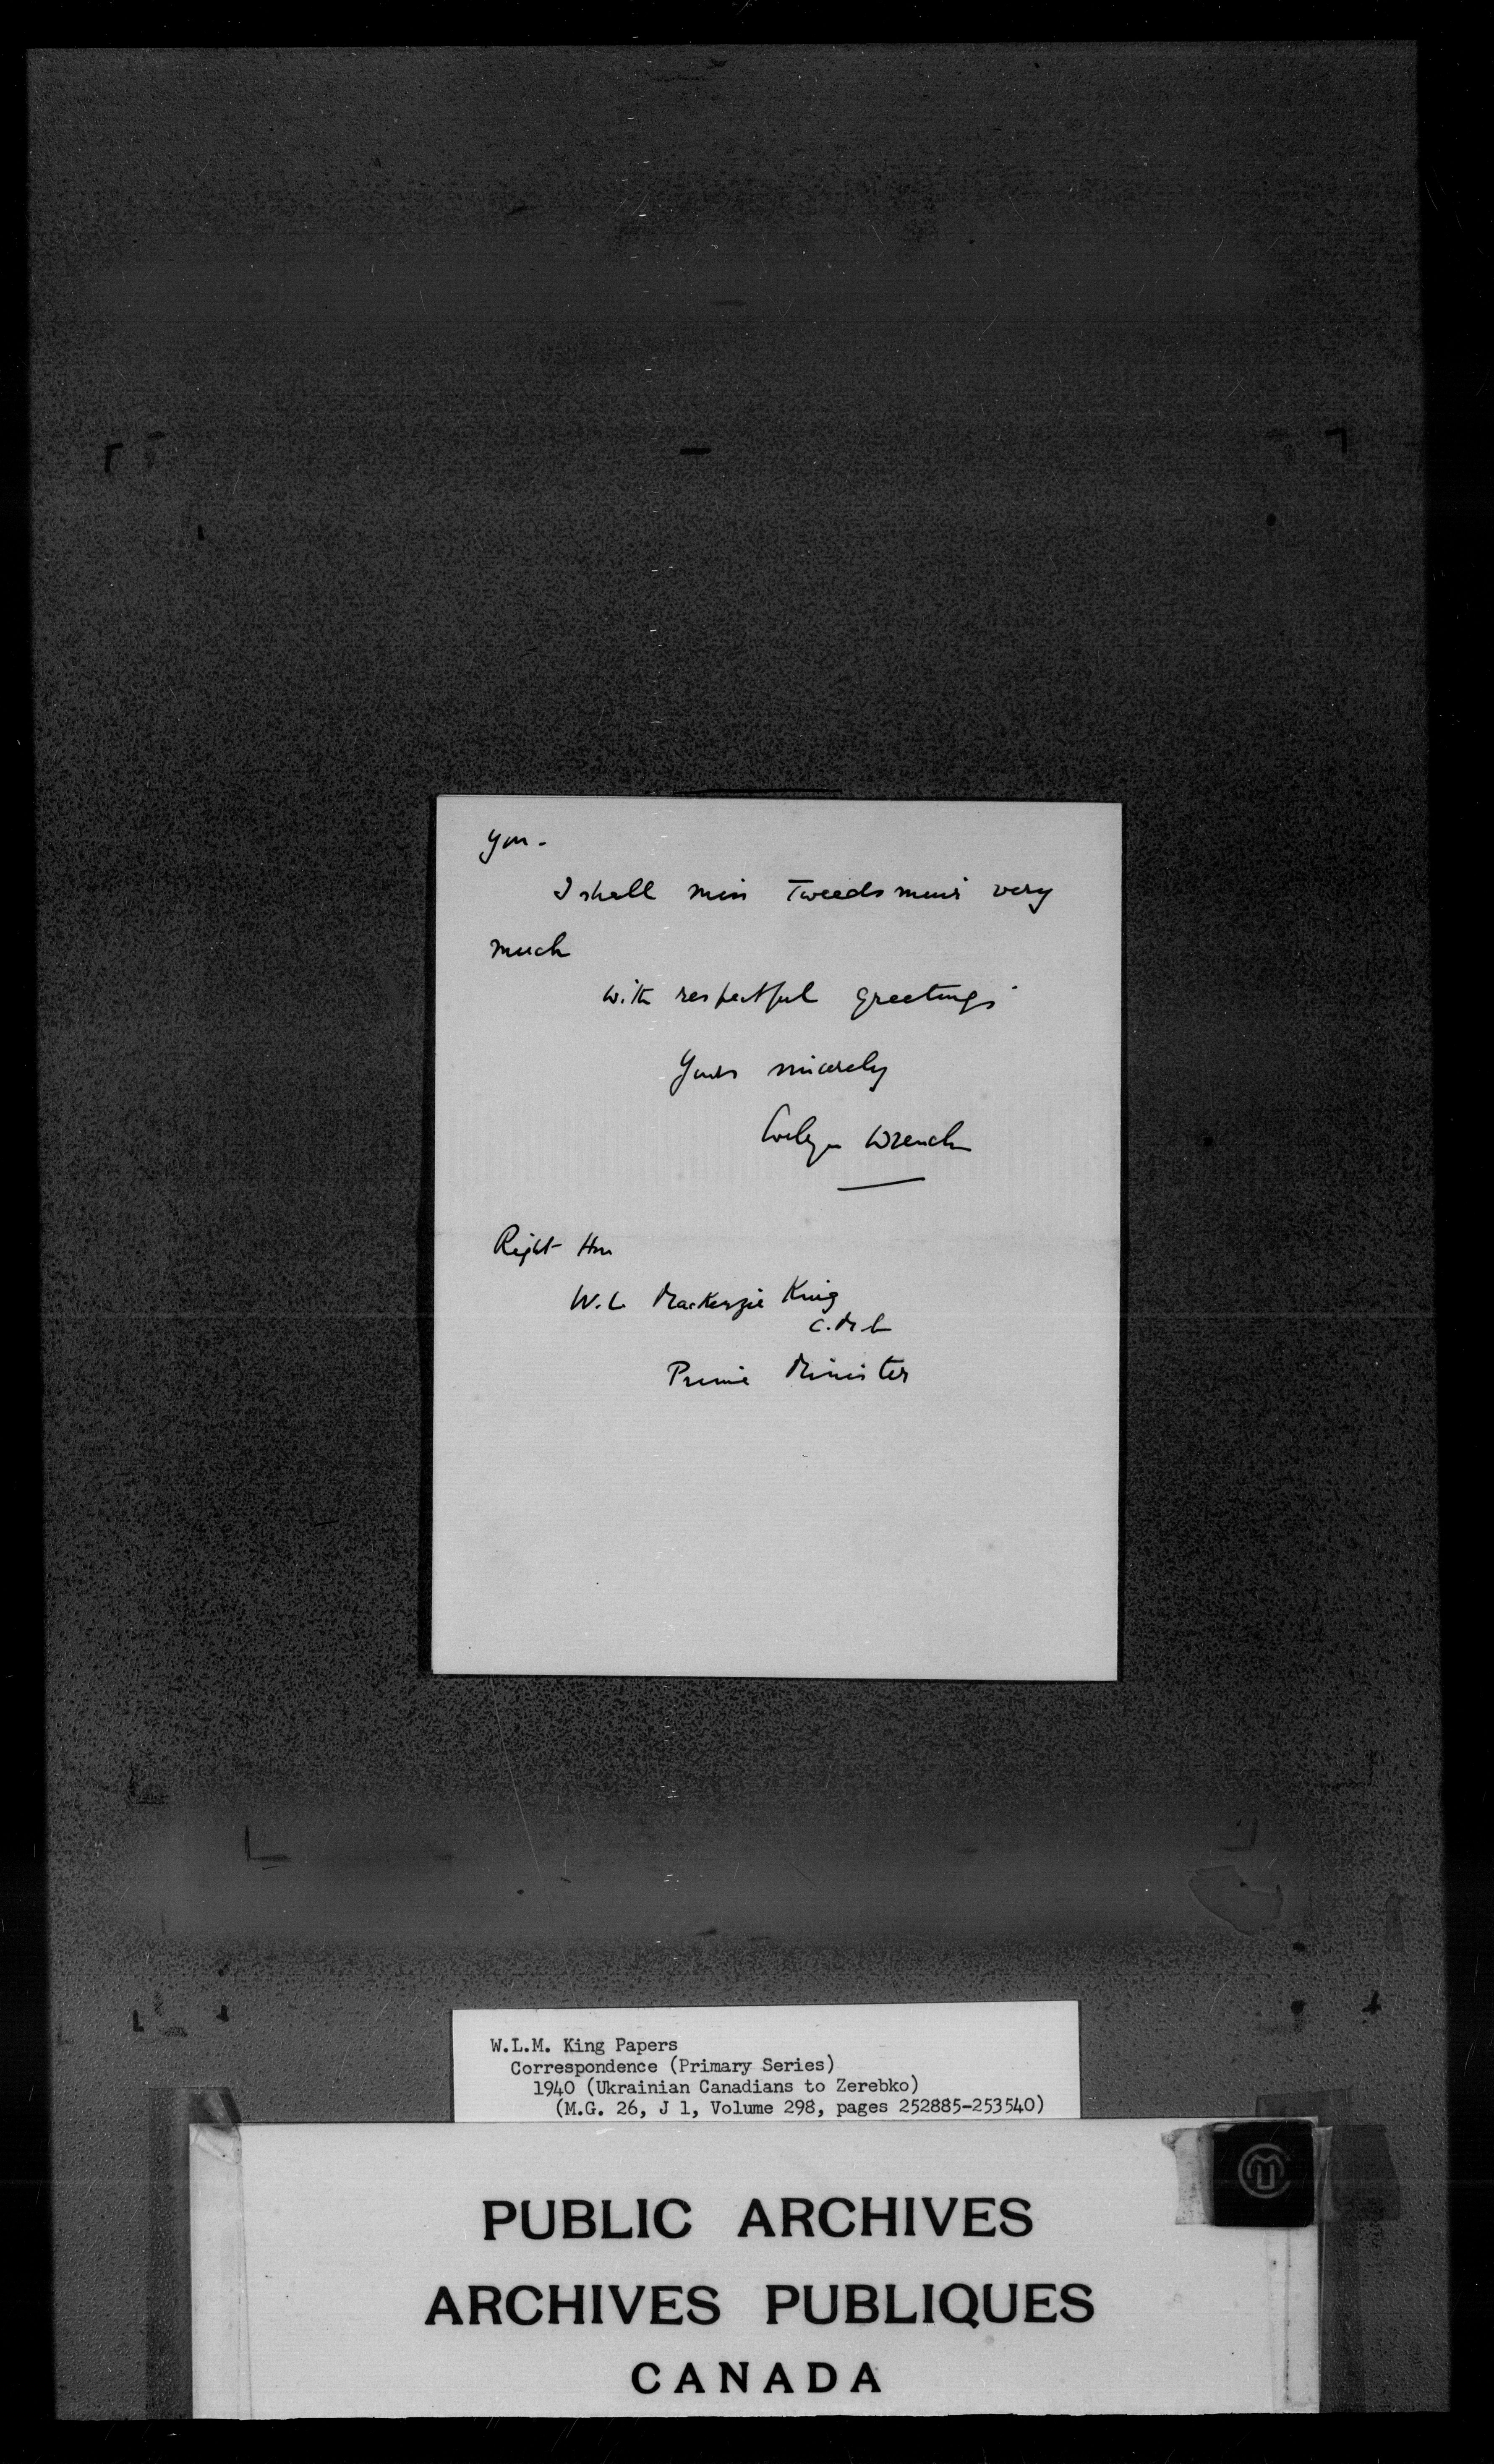 you.
I shall miss Tweedsmuir very
much
With respectful greetings
Yours sincerely
Evelyn Wrench
Right Hon
W.L. Mackenzie King
C.M.G
Prime Minister
W.L.M. King Papers
Correspondence (Primary Series)
1940 (Ukrainian Canadians to Zerebko)
(M.G. 26, J 1, Volume 298, pages 252885-253540)
PUBLIC ARCHIVES
ARCHIVES PUBLIQUES
CANADA